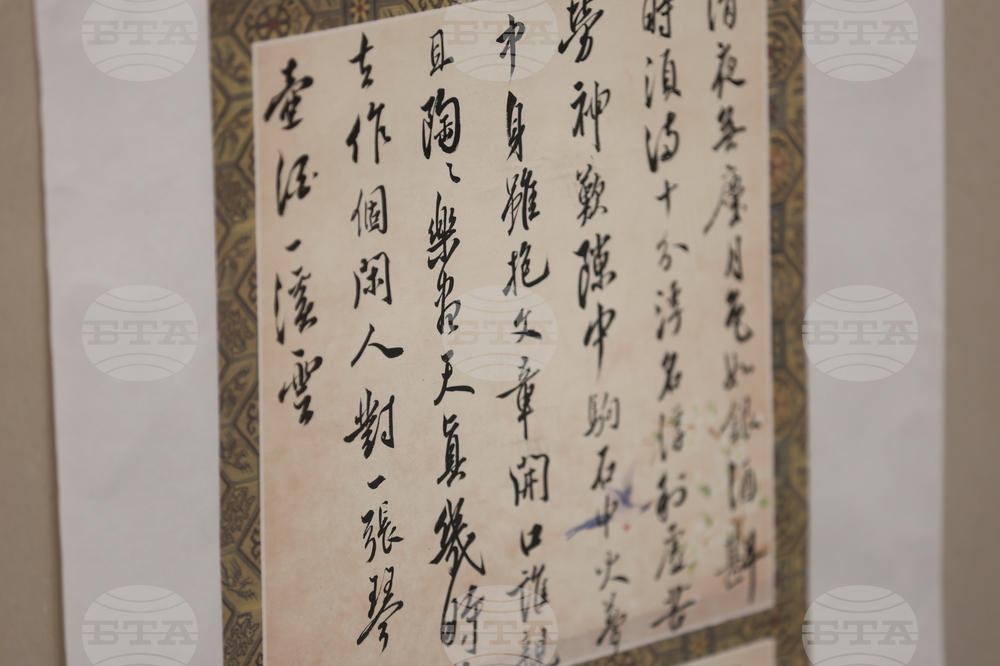 清夜無塵月色如銀酒斟
時須滿十分浮名浮利虛苦
勞神歎隙中駒石中火夢
中身雖抱文章開口誰親
且陶々樂盡天真幾時
去作個閑人對一張琴
壺酒一溪雲
БТА
БТА
БТА
БТА
БТА
БТА